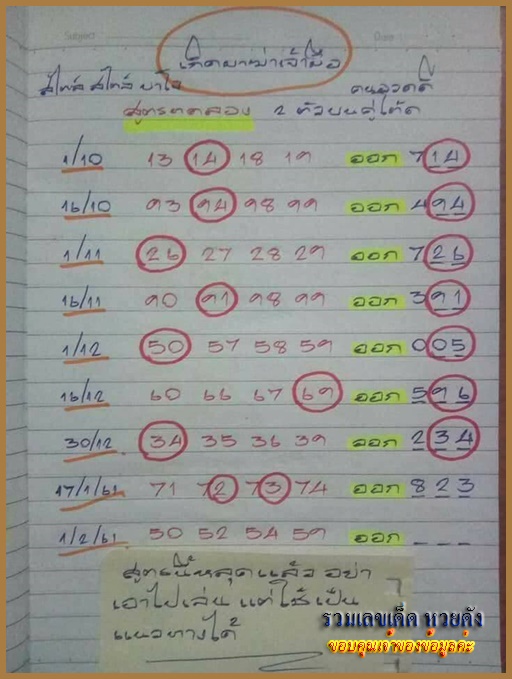 Subject Date
เกิดมาฆ่าเจ้ามือ
สไตล์ สไตล์ คนลวดดี
สูตรทดลอง 2 ตัวบนคู่โต๊ด
1/10 13 14 18 19 ออก 714
16/10 93 94 98 99 ออก 494
1/11 26 27 28 29 ออก 726
16/11 90 91 98 99 ออก 391
1/12 50 57 58 59 ออก 005
16/12 60 66 67 69 ออก 596
30/12 34 35 36 39 ออก 234
17/1/61 71 72 73 74 ออก 823
1/2/61 50 52 54 59 ออก _ _ _
สูตรนี้หลุดแล้ว อย่า
เอาไปเล่น แต่ใช้เป็น
แนวทางได้
รวมเลขเด็ด หวยดัง
ขอบคุณเจ้าของข้อมูลค่ะ